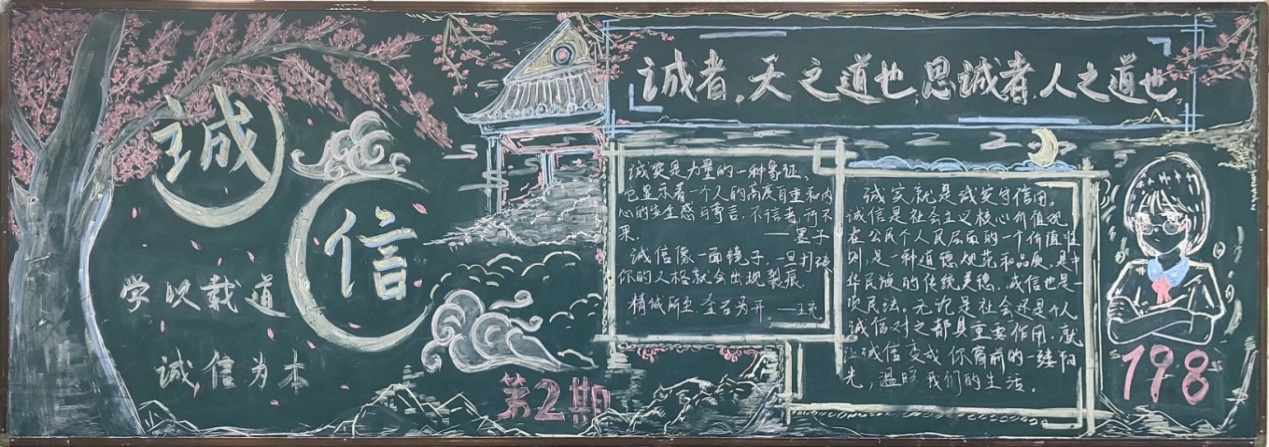 诚
信
学以载道
诚信为本
第2期
诚者,天之道也,思诚者,人之道也
诚实是力量的一种象征、
它显示着一个人的高度自重和内
心的安全感与尊言,不信者,行不
果。 ——墨子
诚信像一面镜子,一旦打破
你的人格就会出现裂痕
精诚所至 金石为开
诚实就是诚实守信用。
诚信是社会主义核心价值观
在公民个人民层面的一个价值准
则,是一种道德规范和品质,是中
华民族的传统美德,诚信也是一
次民法。无论是社会还是个人
诚信对之都具重要作用,就
让诚信变成你窗前的一缕阳
光,温暖我们的生活。
198